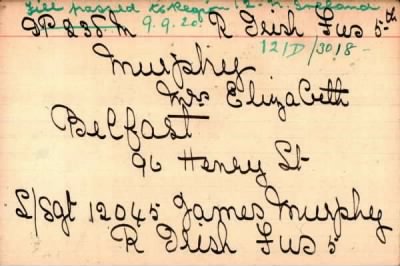 File passed to Region 12. N. Ireland
9.9.20.
R Irish Fus 5th
12/D/3018-
Murphy
Mrs Elizabeth
Belfast
96 Henry St
L/Sgt 12045 James Murphy
R Irish Fus 5